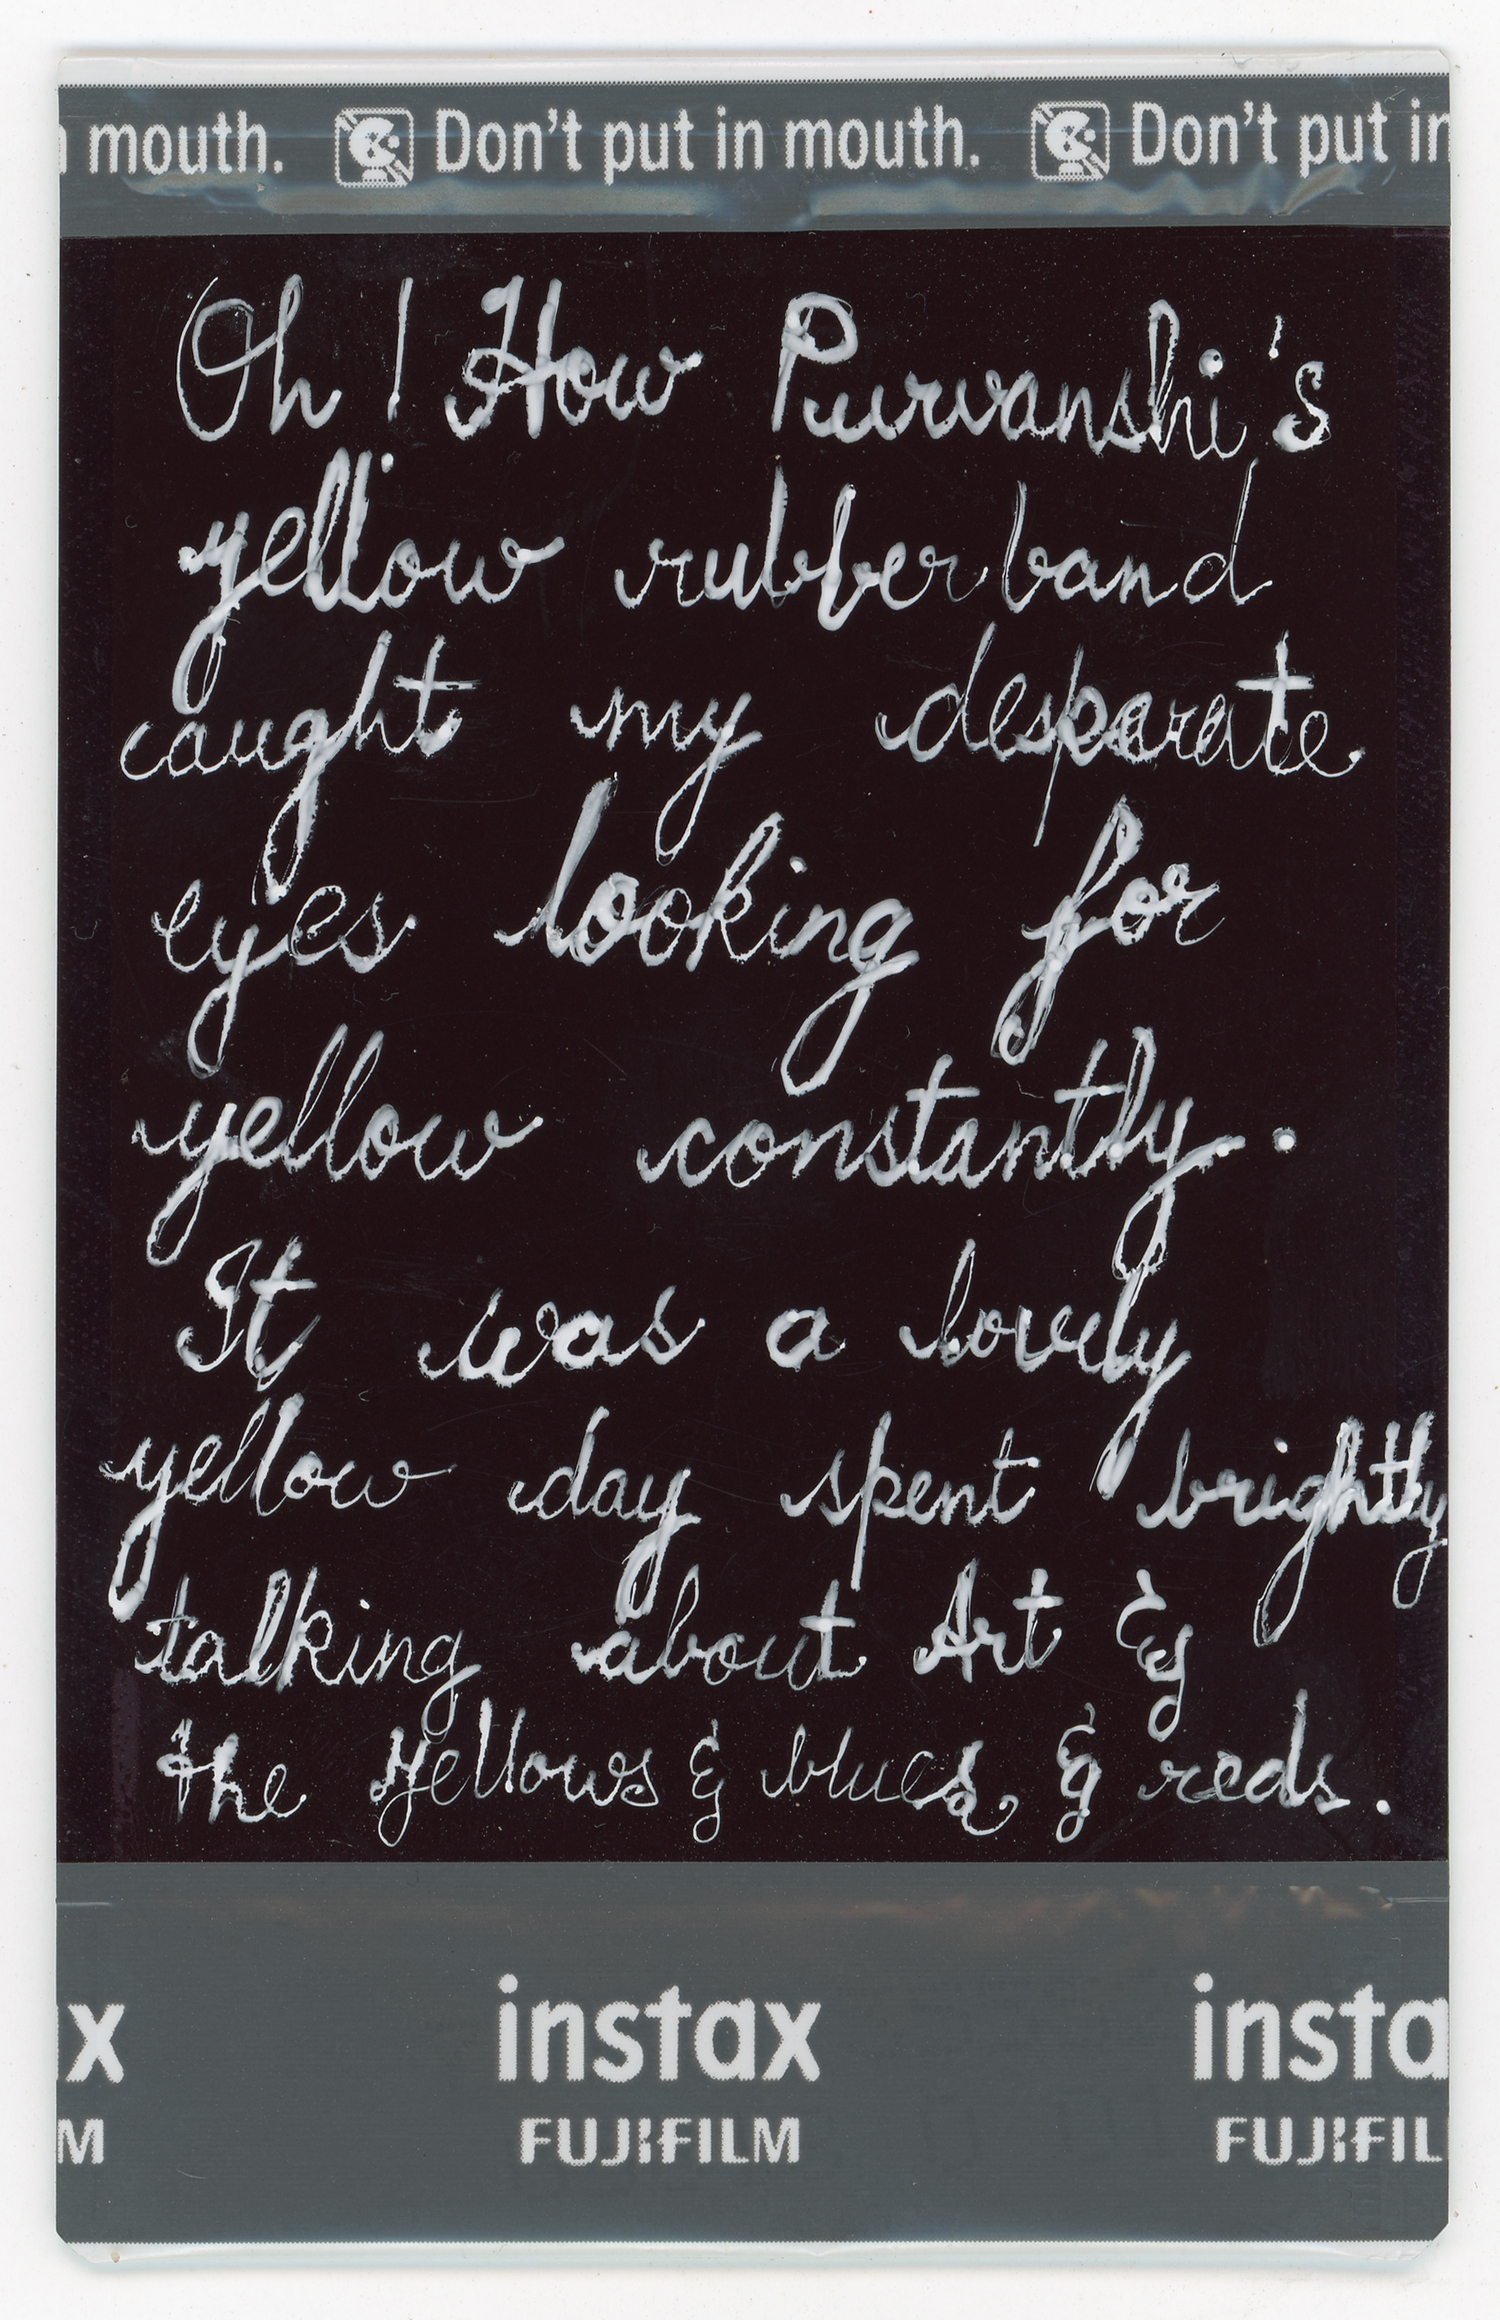 n mouth. Don't put in mouth. Don't put in
Oh! How Purvanshi's
yellow rubberband
caught my desparate
eyes looking for
yellow constantly.
It was a lovely
yellow day spent brightly
talking about Art &
the yellows & blues & reds.
ax instax insta
M FUJIFILM FUJIFIL